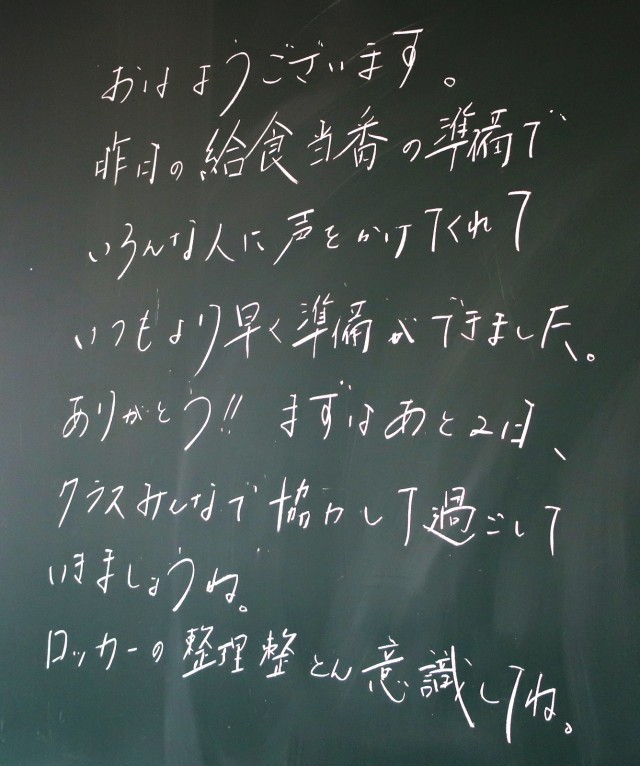 おはようございます。
昨日の給食当番の準備で
いろんな人に声をかけてくれて
いつもより早く準備ができました。
ありがとう!! まずはあと2日、
クラスみんなで協力して過ごして
いきましょうね。
ロッカーの整理整とん意識してね。